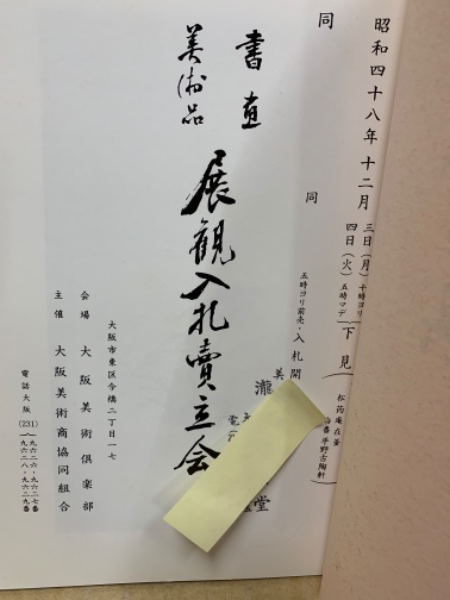 昭和四十八年十二月
三日(月)十時ヨリ
四日(火)五時マデ
下見
松筠庵在釜
平野古陶軒
同
同
五時ヨリ前売・入札開
書画
美術品
展観入札賣立会
瀧
堂
大阪市東区今橋二丁目一七
会場 大阪美術倶楽部
主催 大阪美術商協同組合
電話大阪(231)九六二六・九六二七番
九六二八・九六二九番